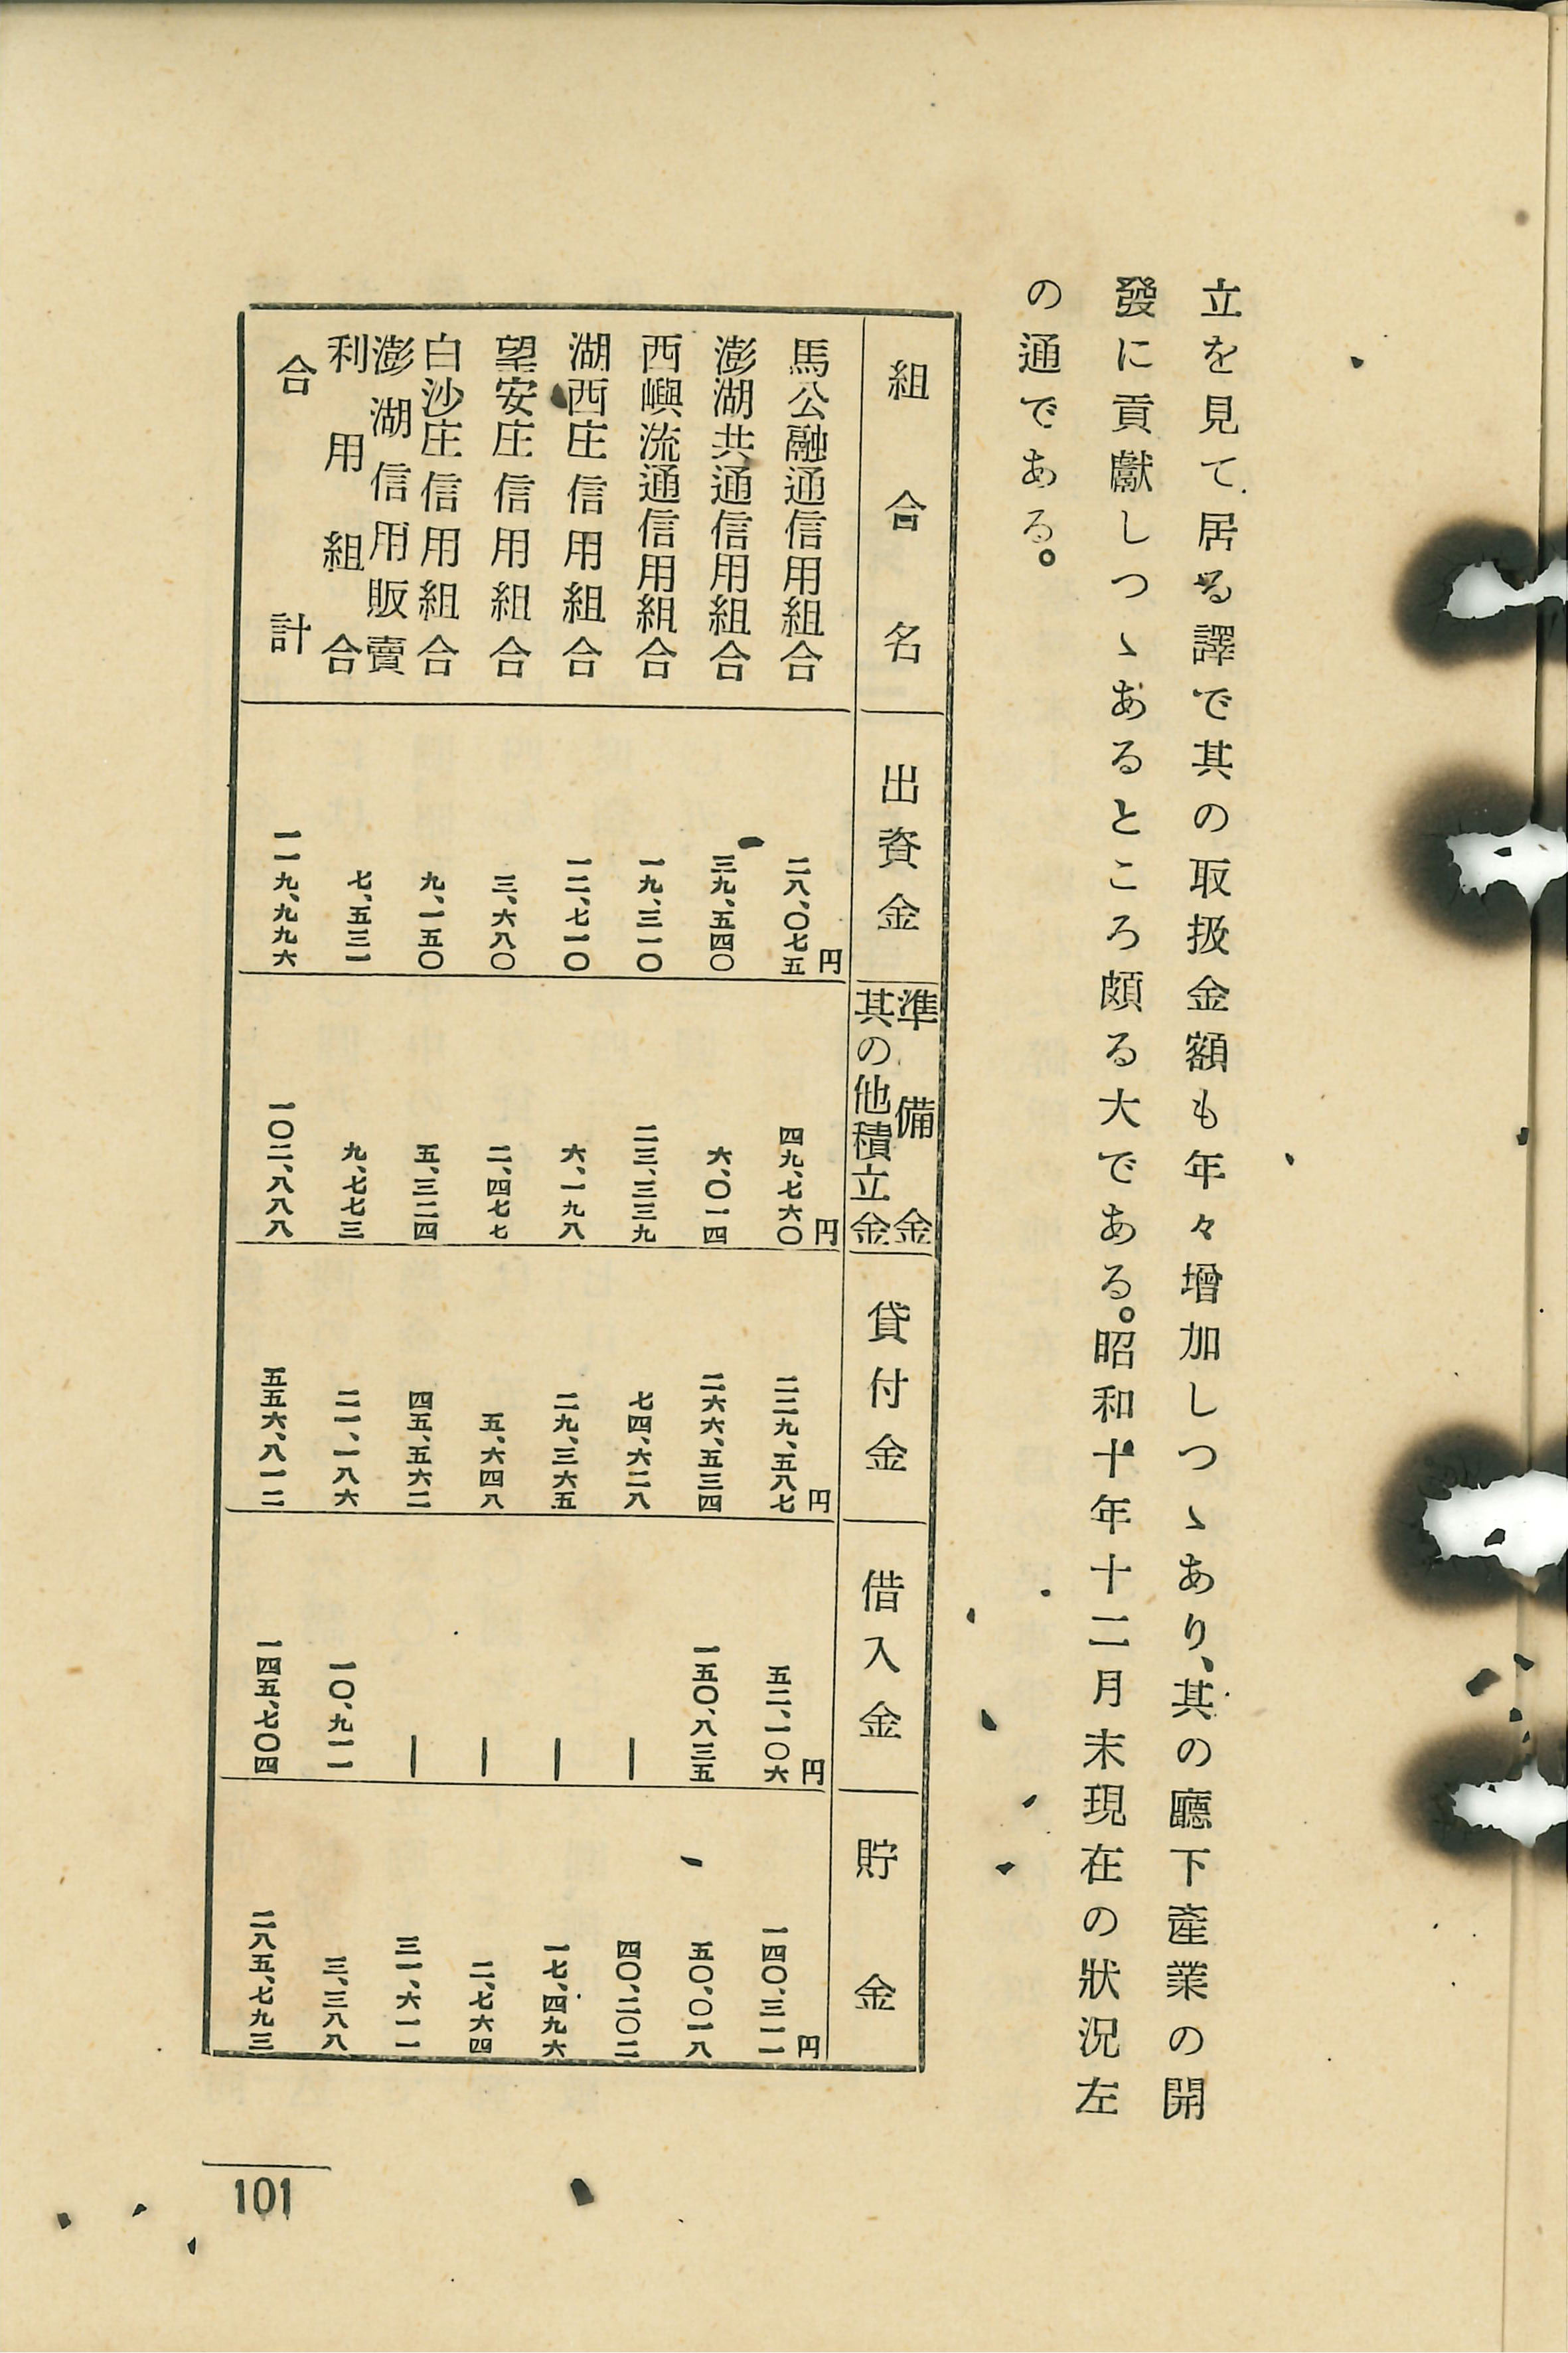 立を見て居る譯で其の取扱金額も年々增加しつゝあり、其の廳下產業の開
發に貢獻しつゝあるところ頗る大である。昭和十年十二月末現在の狀況左
の通である。
組合名 出資金 準備金其の他積立金 貸付金 借入金 貯金
馬公融通信用組合 二八、〇七五円 四九、七六〇円 二二九、五八七円 五二、一〇六円 一四〇、三一一円
澎湖共通信用組合 三九、五四〇 六、〇一四 二六六、五三四 一五〇、八三五 五〇、〇一八
西嶼流通信用組合 一九、三一〇 二三、三三九 七四、六二八 ― 四〇、二〇二
湖西庄信用組合 一二、七一〇 六、一九八 二九、三六五 ― 一七、四九六
望安庄信用組合 三、六八〇 二、四七七 五、六四八 ― 二、七六四
白沙庄信用組合 九、一五〇 五、三二四 四五、五六二 ― 三一、六一一
澎湖信用販賣利用組合 七、五三一 九、七七三 二一、一八六 一〇、九一一 三、三八八
合計 一一九、九九六 一〇二、八八八 五五六、八一二 一四五、七〇四 二八五、七九三
101